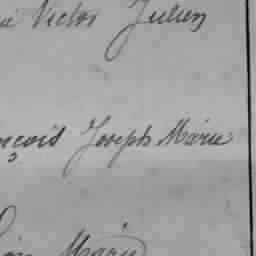 Victor Julien
nçois Joseph Marie
Marie